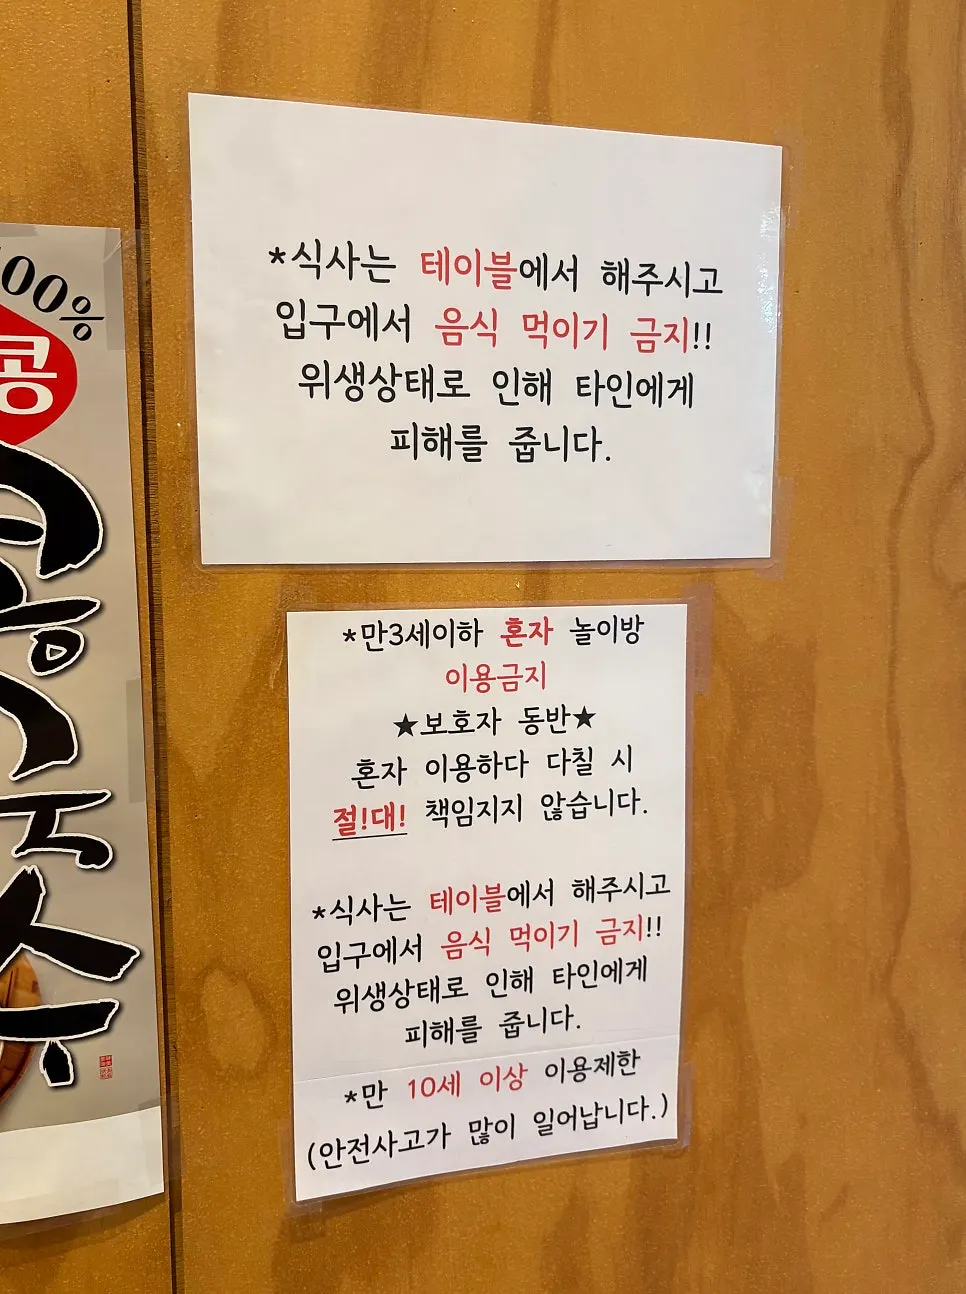 100%
콩
콩국수
*식사는 테이블에서 해주시고
입구에서 음식 먹이기 금지!!
위생상태로 인해 타인에게
피해를 줍니다.
*만3세이하 혼자 놀이방
이용금지
★보호자 동반★
혼자 이용하다 다칠 시
절!대! 책임지지 않습니다.
*식사는 테이블에서 해주시고
입구에서 음식 먹이기 금지!!
위생상태로 인해 타인에게
피해를 줍니다.
*만 10세 이상 이용제한
(안전사고가 많이 일어납니다.)